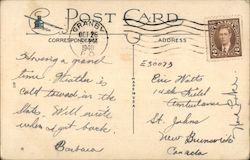 POST CARD
GRANBY
CORRESPONDENCE
ADDRESS
Having a grand
time. Weather is
cold toward in the
States. Will write
when I get back.
Barbara
E30073
Eric Watts
14th Field
Ambulance
St. Johns
New Brunswick
Canada